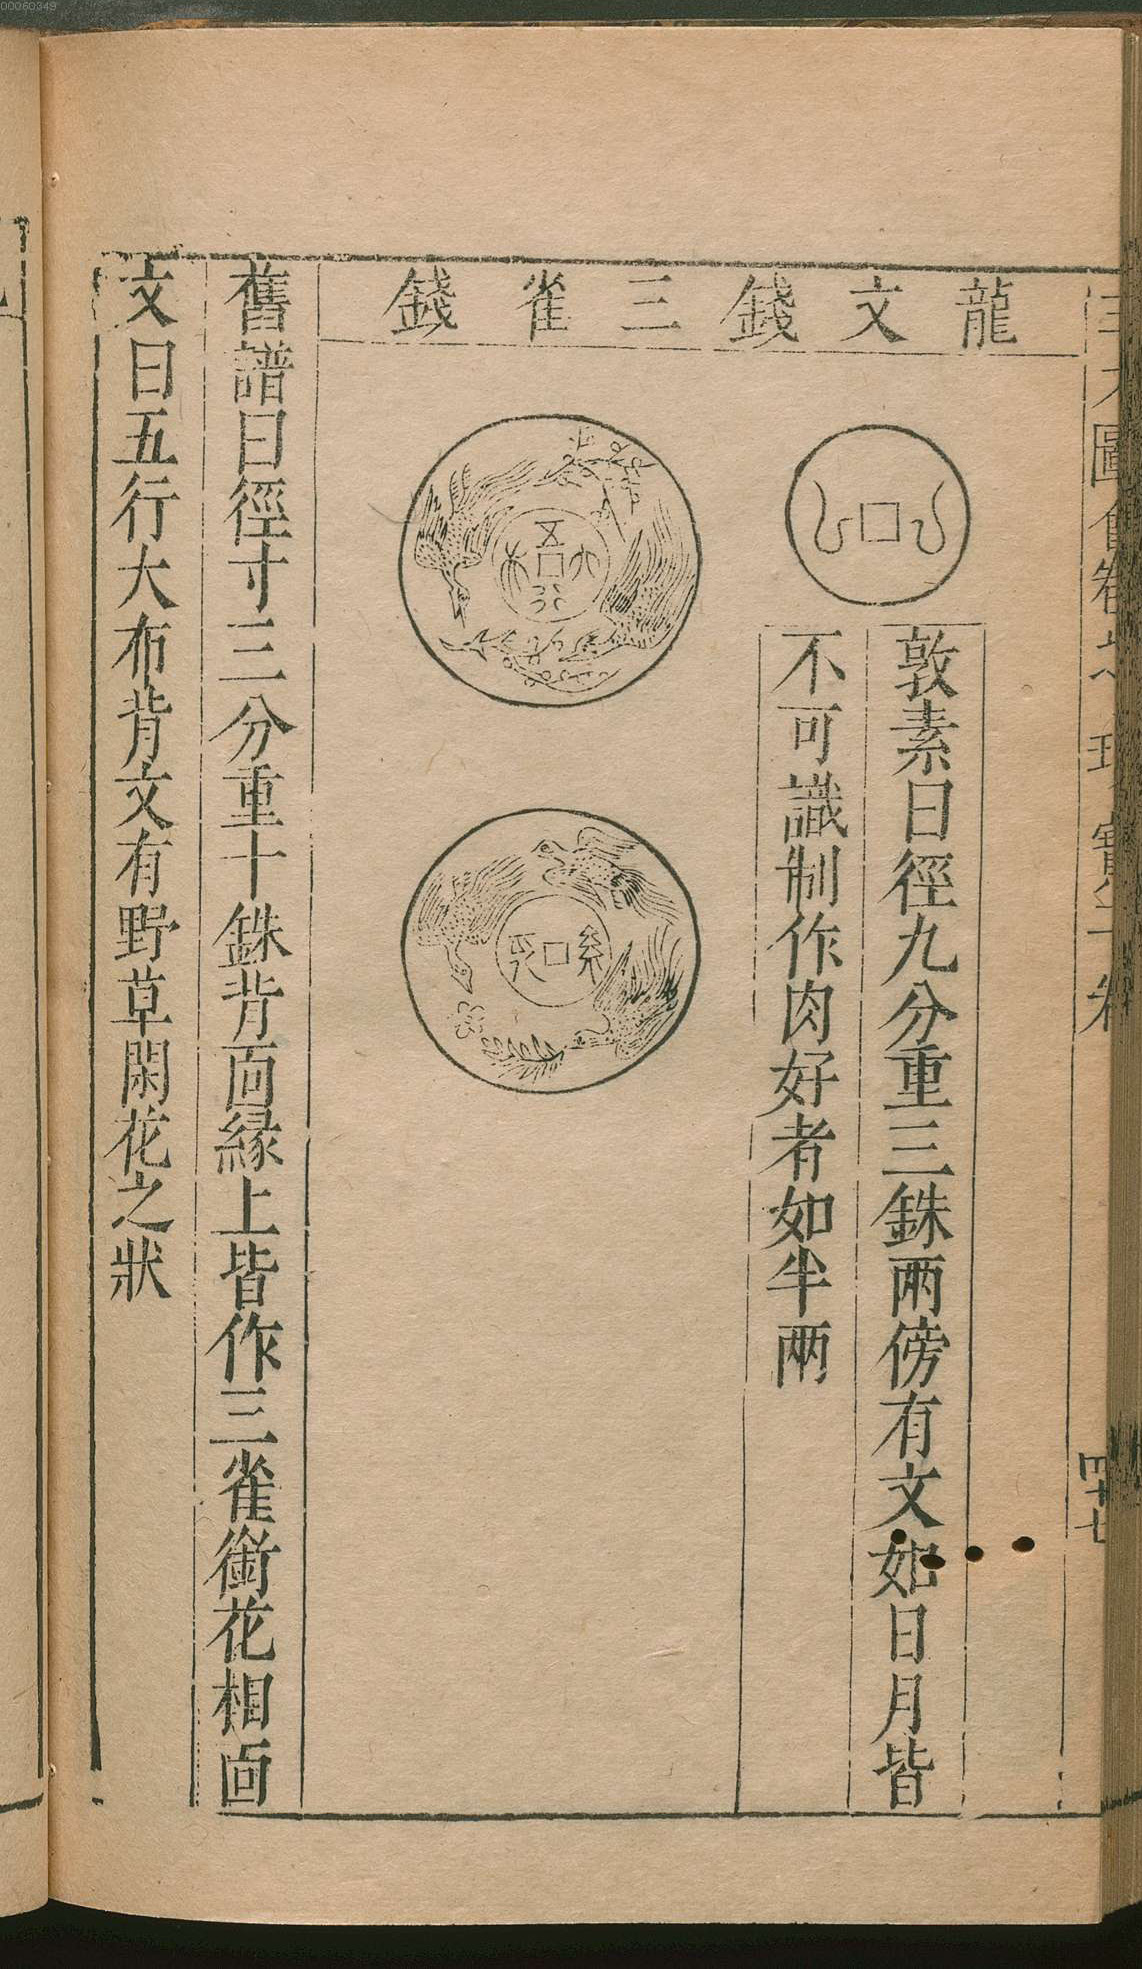 00060349
三才圖會卷 珍寶一卷
四十七
龍文錢
敦素曰徑九分重三銖兩傍有文如日月皆
不可識制作肉好者如半兩
三雀錢
五行大布
舊譜曰徑寸三分重十銖背面緣上皆作三雀銜花相面
文曰五行大布背文有野草閑花之狀